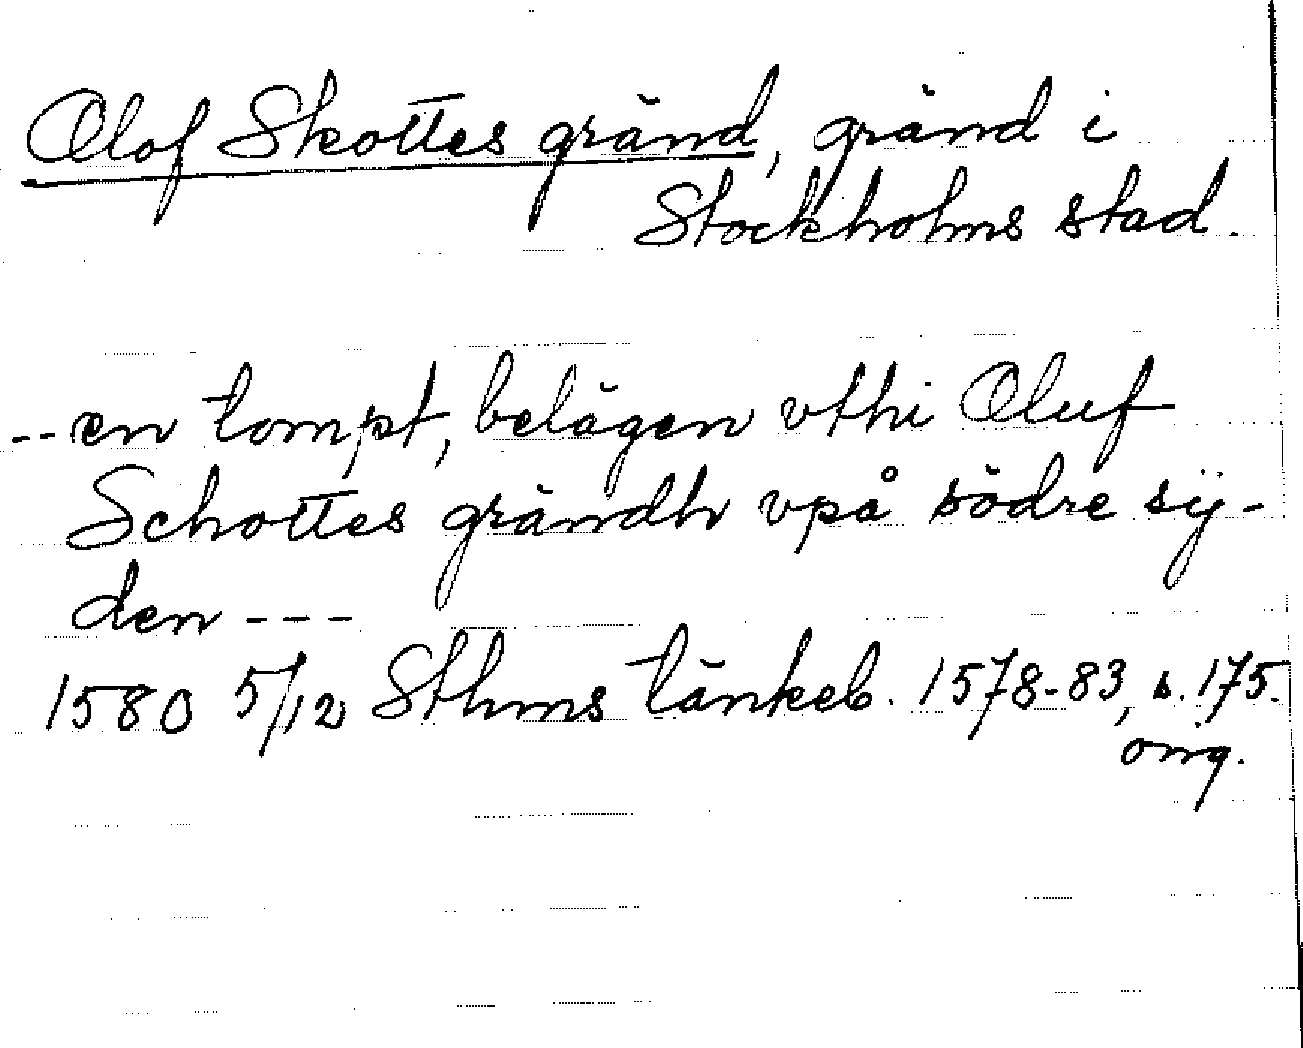 Olof Skottes gränd, gränd i
Stockholms stad.
-- en tompt, belägen vthi Oluf
Schottes grändh vpå södre sÿ-
den ---
1580 5/12 Sthms tänkeb. 1578-83, s. 175.
orig.